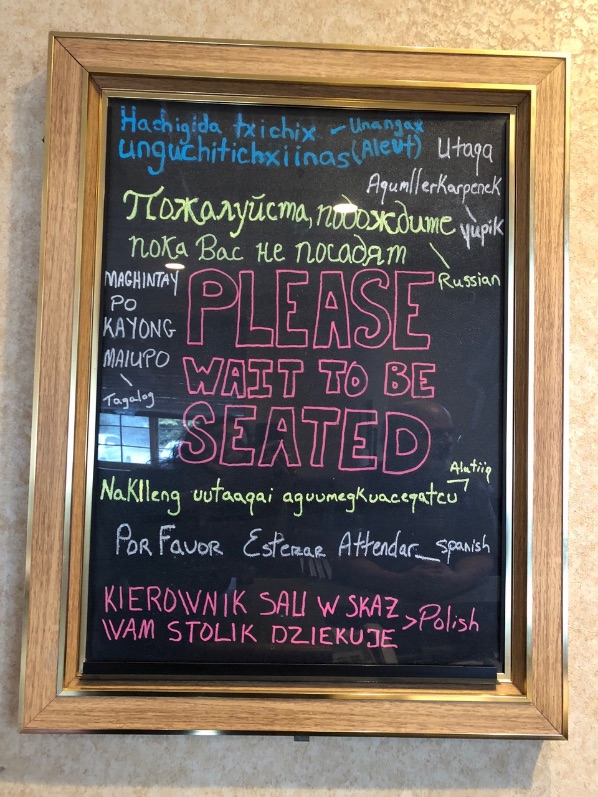 Hachigida txichix - Unangax
unguchitichxiinas (Aleut)
Utaqa
Aqumllerkarpenek
Yupik
Пожалуйста, подождите
пока Вас не посадят
Russian
MAGHINTAY
PO
KAYONG
MAIUPO
Tagalog
PLEASE
WAIT TO BE
SEATED
Alutiiq
Naklleng uutaaqai aguumegkuaceqatcu
Por Favor Esperar Attendar_ spanish
KIEROWNIK SALI W SKAZ
WAM STOLIK DZIEKUJE >Polish